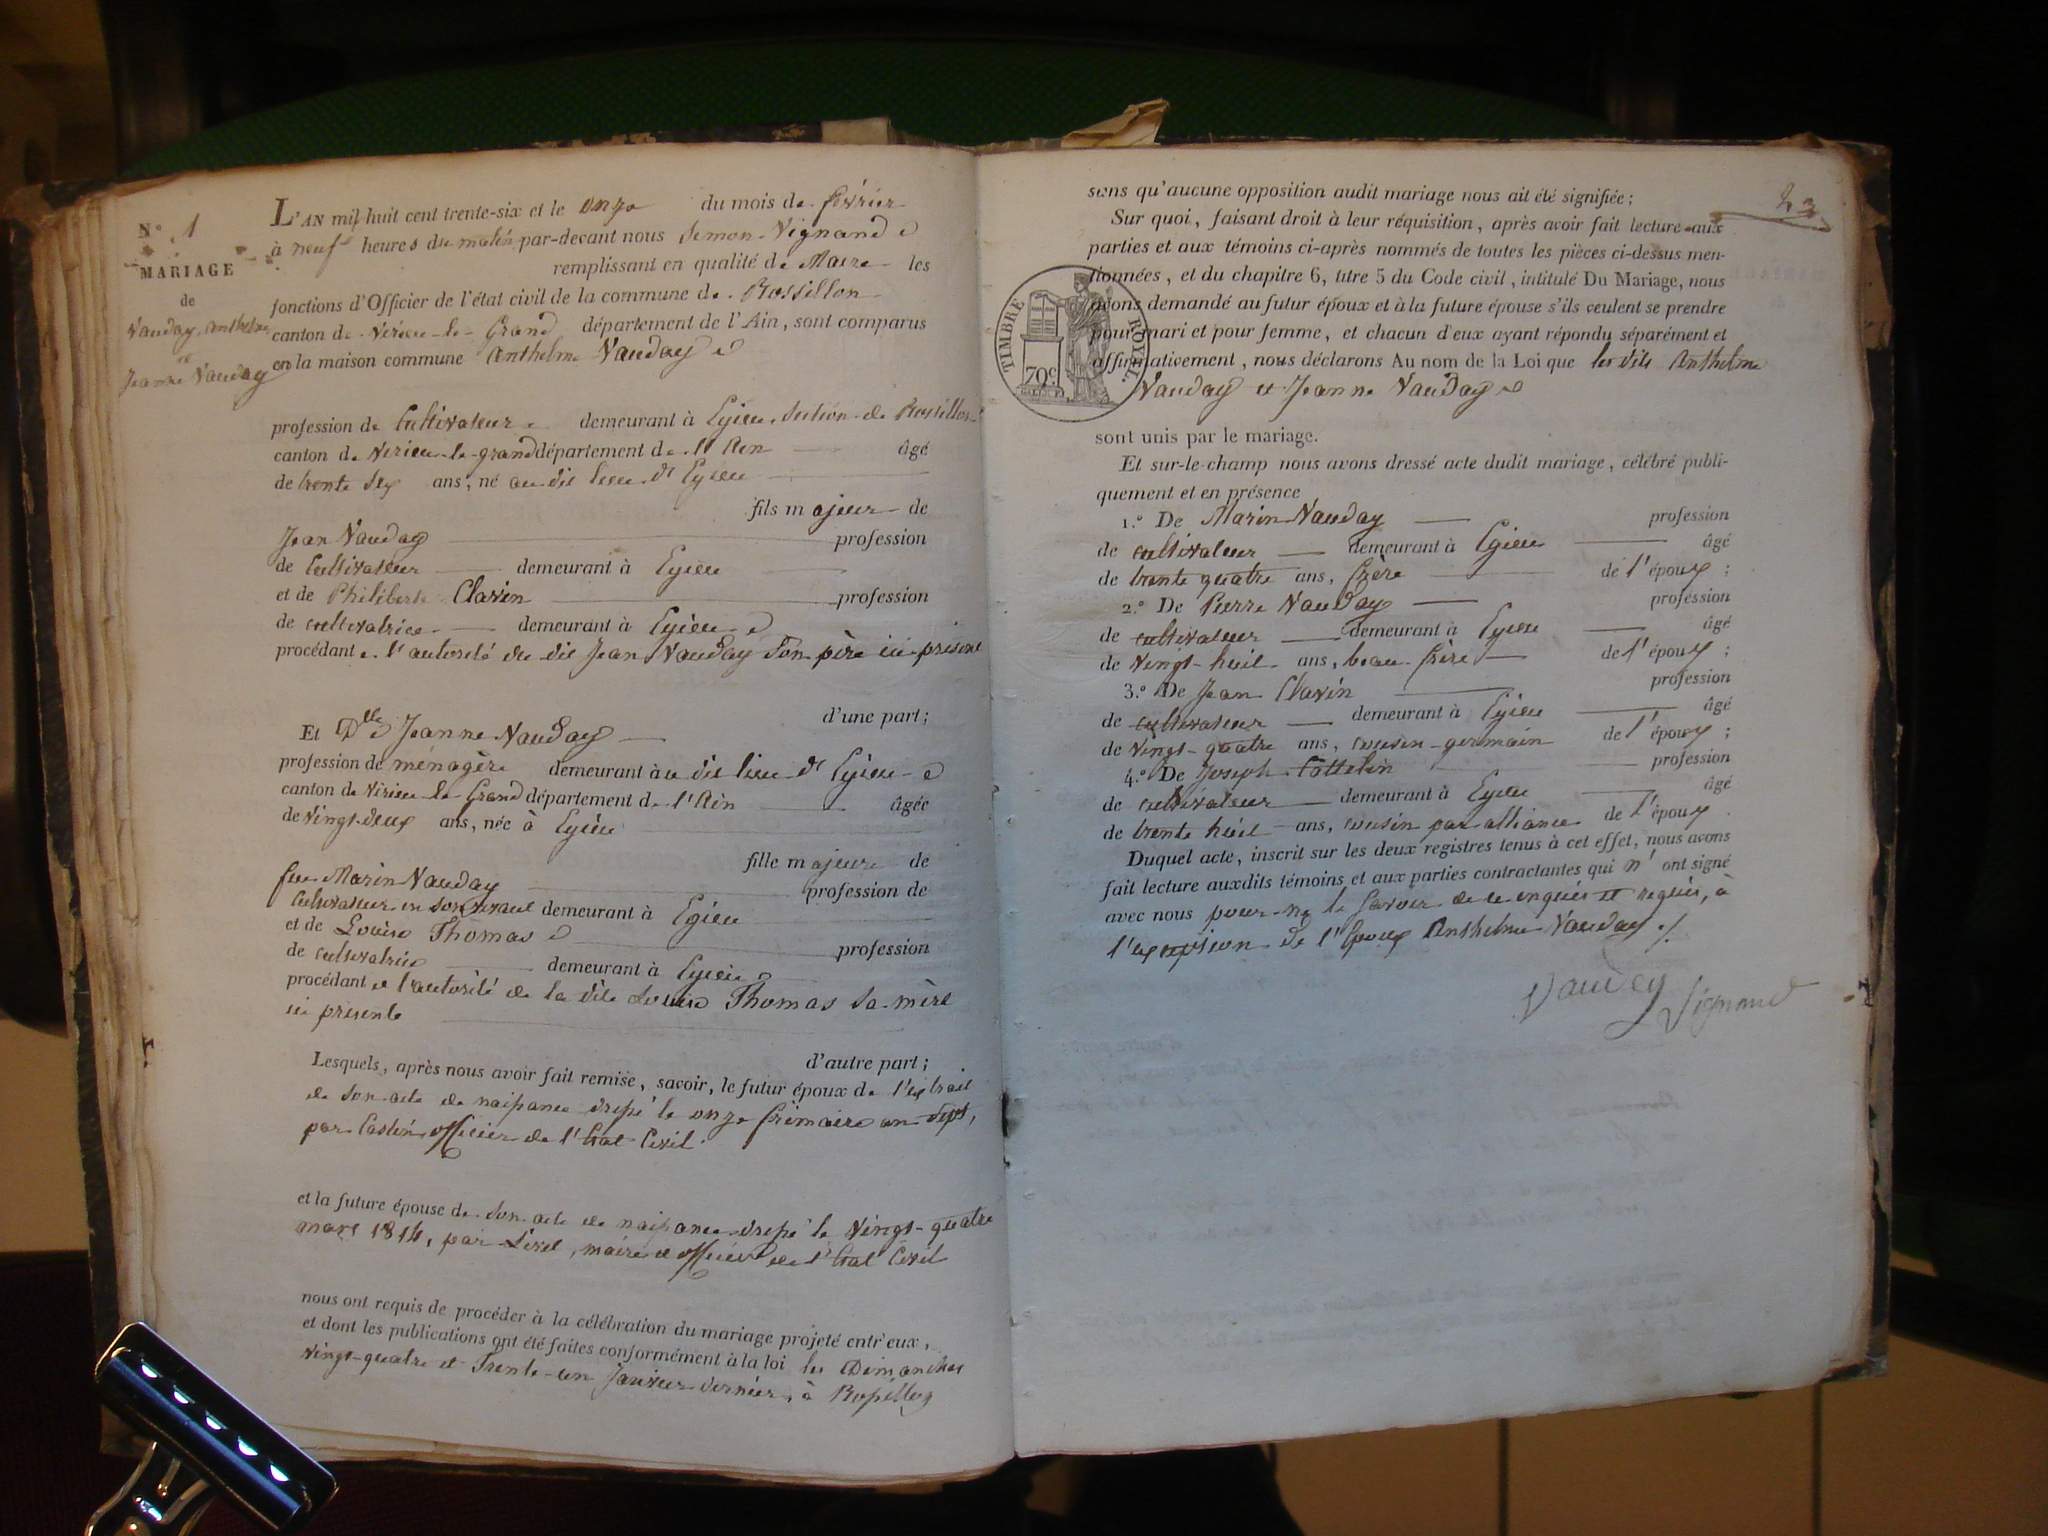 N.° 1
MARIAGE
de
Vauday Anthelme
et
Jeanne Vauday
L'AN mil huit cent trente-six et le onze du mois de février
à neuf heures du matin par-devant nous Simon Vignand
remplissant en qualité de Maire les
fonctions d'Officier de l'état civil de la commune de Rossillon
canton de Virieu-le-Grand département de l'Ain, sont comparus
en la maison commune Anthelme Vauday
profession de Cultivateur demeurant à Egieu, section de Rossillon
canton de Virieu-le-grand département de l'Ain âgé
de trente six ans, né au dit lieu d'Egieu
fils majeur de
Jean Vauday profession
de Cultivateur demeurant à Egieu
et de Philiberte Clavin profession
de cultivatrice demeurant à Egieu
procédant l'autorité du dit Jean Vauday Son père ici présent
d'une part;
Et Dlle Jeanne Vauday
profession de ménagère demeurant àu dit lieu d'Egieu
canton de Virieu-le-Grand département de l'Ain âgée
de vingt-deux ans, née à Egieu
fille majeure de
feu Marin Vauday profession de
Cultivateur en son vivant demeurant à Egieu
et de Louise Thomas profession
de cultivatrice demeurant à Egieu
procédant l'autorité de la dite Louise Thomas sa mère
ici présente
d'autre part;
Lesquels, après nous avoir fait remise, savoir, le futur époux de l'extrait
de son acte de naissance dressé le onze frimaire an sept,
par Castin officier de l'Etat Civil.
et la future épouse de son acte de naissance dressé le vingt-quatre
mars 1814, par maire officier de l'Etat Civil
nous ont requis de procéder à la célébration du mariage projeté entr'eux,
et dont les publications ont été faites conformément à la loi les Dimanches
vingt-quatre et Trente-un Janvier dernier, à Rossillon
23
sans qu'aucune opposition audit mariage nous ait été signifiée;
Sur quoi, faisant droit à leur réquisition, après avoir fait lecture aux
parties et aux témoins ci-après nommés de toutes les pièces ci-dessus men-
tionnées, et du chapitre 6, titre 5 du Code civil, intitulé Du Mariage, nous
avons demandé au futur époux et à la future épouse s'ils veulent se prendre
pour mari et pour femme, et chacun d'eux ayant répondu séparément et
affirmativement, nous déclarons Au nom de la Loi que les dits Anthelme
Vauday et Jeanne Vauday
TIMBRE ROYAL.
70c
sont unis par le mariage.
Et sur-le-champ nous avons dressé acte dudit mariage, célébré publi-
quement et en présence
1.° De Marin Vauday profession
de cultivateur demeurant à Egieu âgé
de trente quatre ans, frère de l'époux;
2.° De Pierre Vauday profession
de cultivateur demeurant à Egieu âgé
de vingt-huit ans, beau-frère de l'époux;
3.° De Jean Clavin profession
de cultivateur demeurant à Egieu âgé
de vingt-quatre ans, cousin-germain de l'époux;
4.° De Joseph Cottelin profession
de cultivateur demeurant à Egieu âgé
de trente huit ans, cousin par alliance de l'époux
Duquel acte, inscrit sur les deux registres tenus à cet effet, nous avons
fait lecture auxdits témoins et aux parties contractantes qui n'ont signé
avec nous pour ne le savoir de ce enquis et requis, à
l'exception de l'Epoux Anthelme Vauday ./.
Vauday Vignand